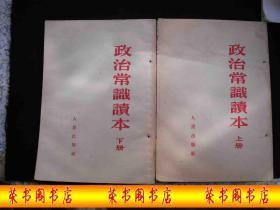 政治常識讀本
下册
人民出版社
政治常識讀本
上册
人民出版社
荣书阁书店 荣书阁书店 荣书阁书店